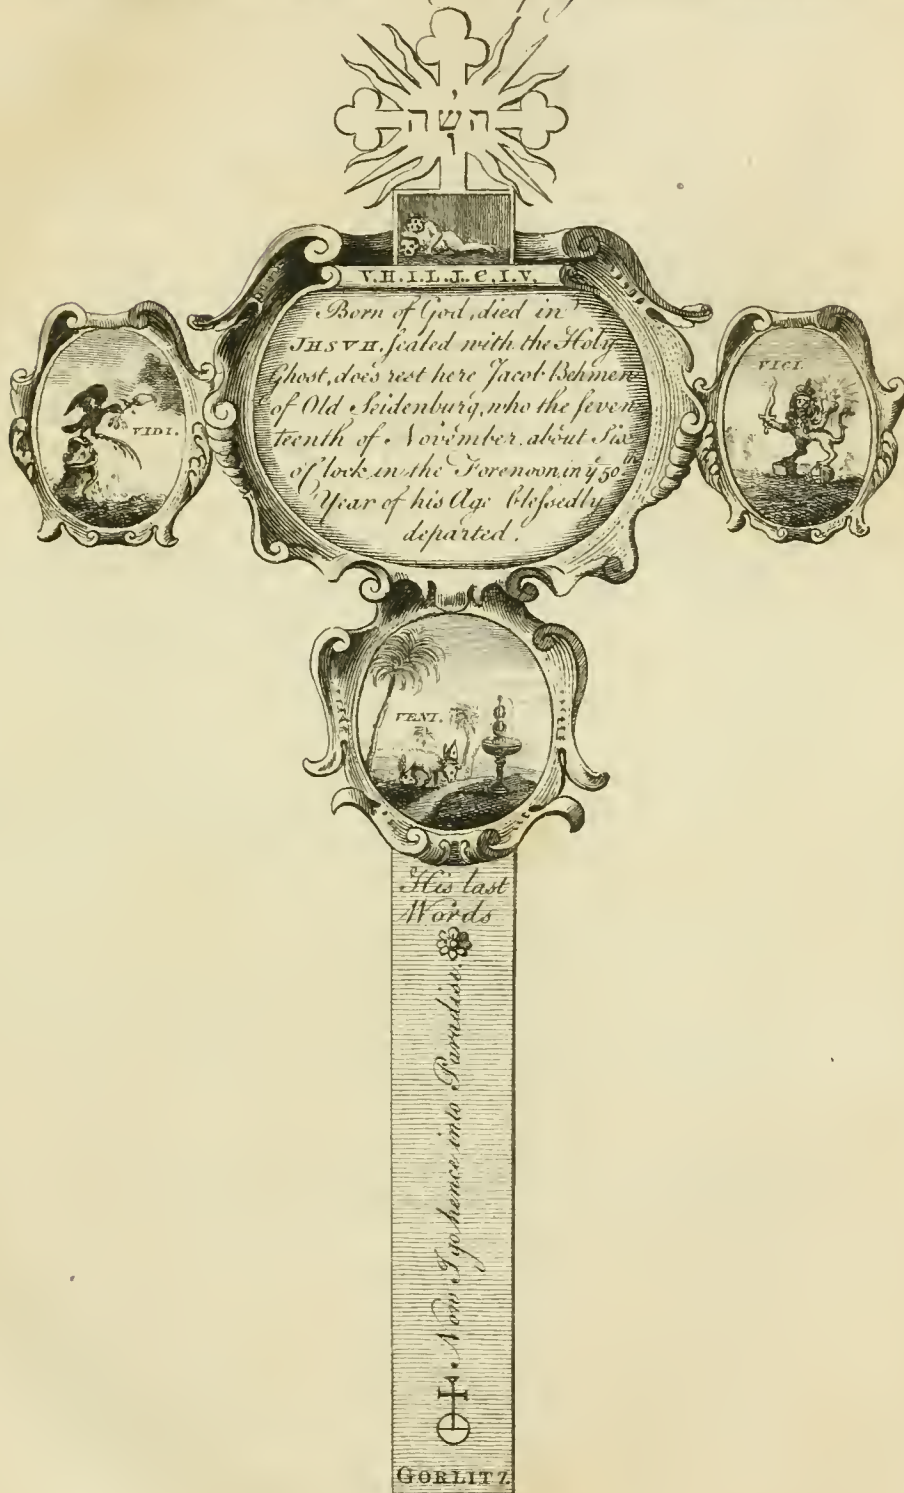 י
השה
ו
V.H.I.L.J.C.I.V.
Born of God, died in
JHSVH, ſealed with the Holy
Ghost, does rest here Jacob Behmen
of Old Seidenburg, who the ſeven
teenth of November, about Six
o'Clock in the Forenoon, in yͤ 50th
Year of his Age bleſsedly
departed.
VIDI.
VICI.
VENI.
His last
Words
Now I go hence into Paradise.
GORLITZ.